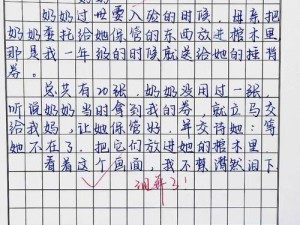 奶奶
奶奶过世要入殓的时候,母亲把
奶奶委托给她保管的东西放进棺木里
那是我一年级的时候就送给她的捶背
券。
总共有20张,奶奶没用过一张,
听说奶奶当时拿到我的券,就立马交
给我妈,让她保管好,并交待她:等
她不在了,把它们放进她的棺木里
看着这个画面,我不禁潸然泪下
泪奔了!